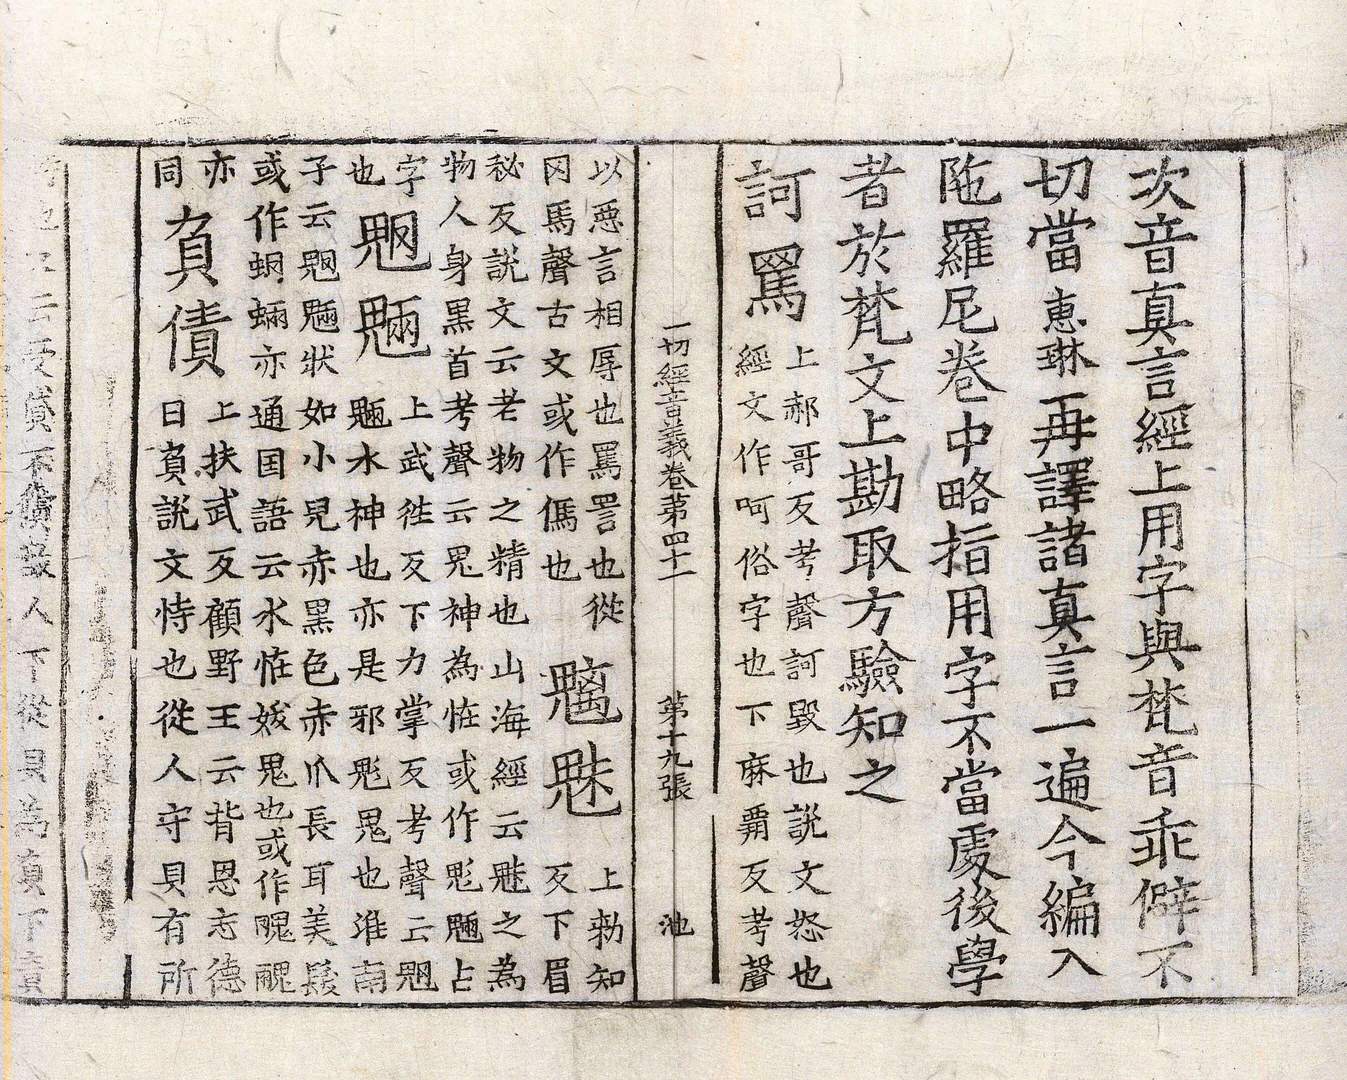 次音真言經上用字與梵音乖僻不
切當惠琳再譯諸真言一遍今編入
陁羅尼卷中略指用字不當處後學
者於梵文上勘取方驗知之
訶罵
上郝哥反考聲訶毀也說文怒也
經文作呵俗字也下麻霸反考聲
一切經音義卷第四十一
第十九張
池
以惡言相辱也罵詈也從
冈馬聲古文或作傌也
魑魅
上勅知
反下眉
秘反說文云老物之精也山海經云魅之為
物人身黑首考聲云鬼神為恠或作鬽魎占
字
魍魎
上武徃反下力掌反考聲云魍
也
魎水神也亦是邪鬽鬼也淮南
子云魍魎狀如小兒赤黑色赤爪長耳美髮
或作蜩蜽亦通囯語云水恠妭鬼也或作
亦
負債
上扶武反顧野王云背恩忘德
同
日負說文恃也從人守貝有所
受貸不償 人下從貝為負下責